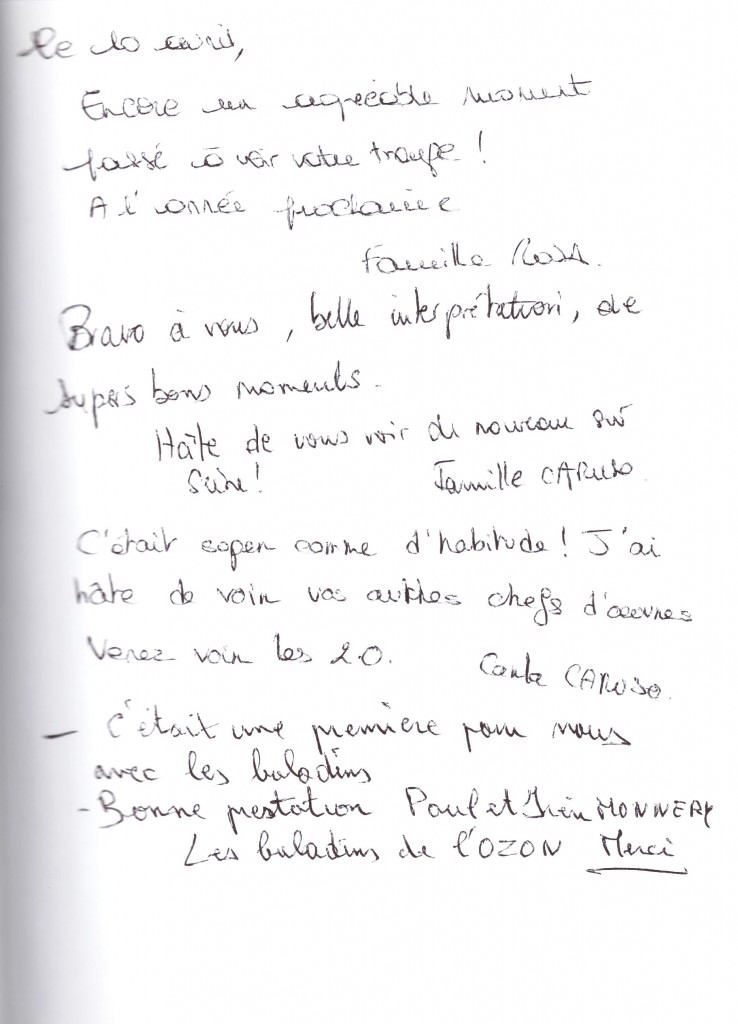 Le 10 avril,
Encore un agréable moment
passé à voir votre troupe !
A l'année prochaine
Famille
Bravo à vous, belle interprétation, de
supers bons moments.
Hâte de vous voir de nouveau sur
Scène !
Famille CARUSO
C'était super comme d'habitude ! J'ai
hâte de voir vos autres chefs d'œuvres
Venez voir les 20.
CARUSO.
— C'était une première pour nous
avec les baladins
- Bonne prestation Paul et MONNERY
Les baladins de l'OZON Merci